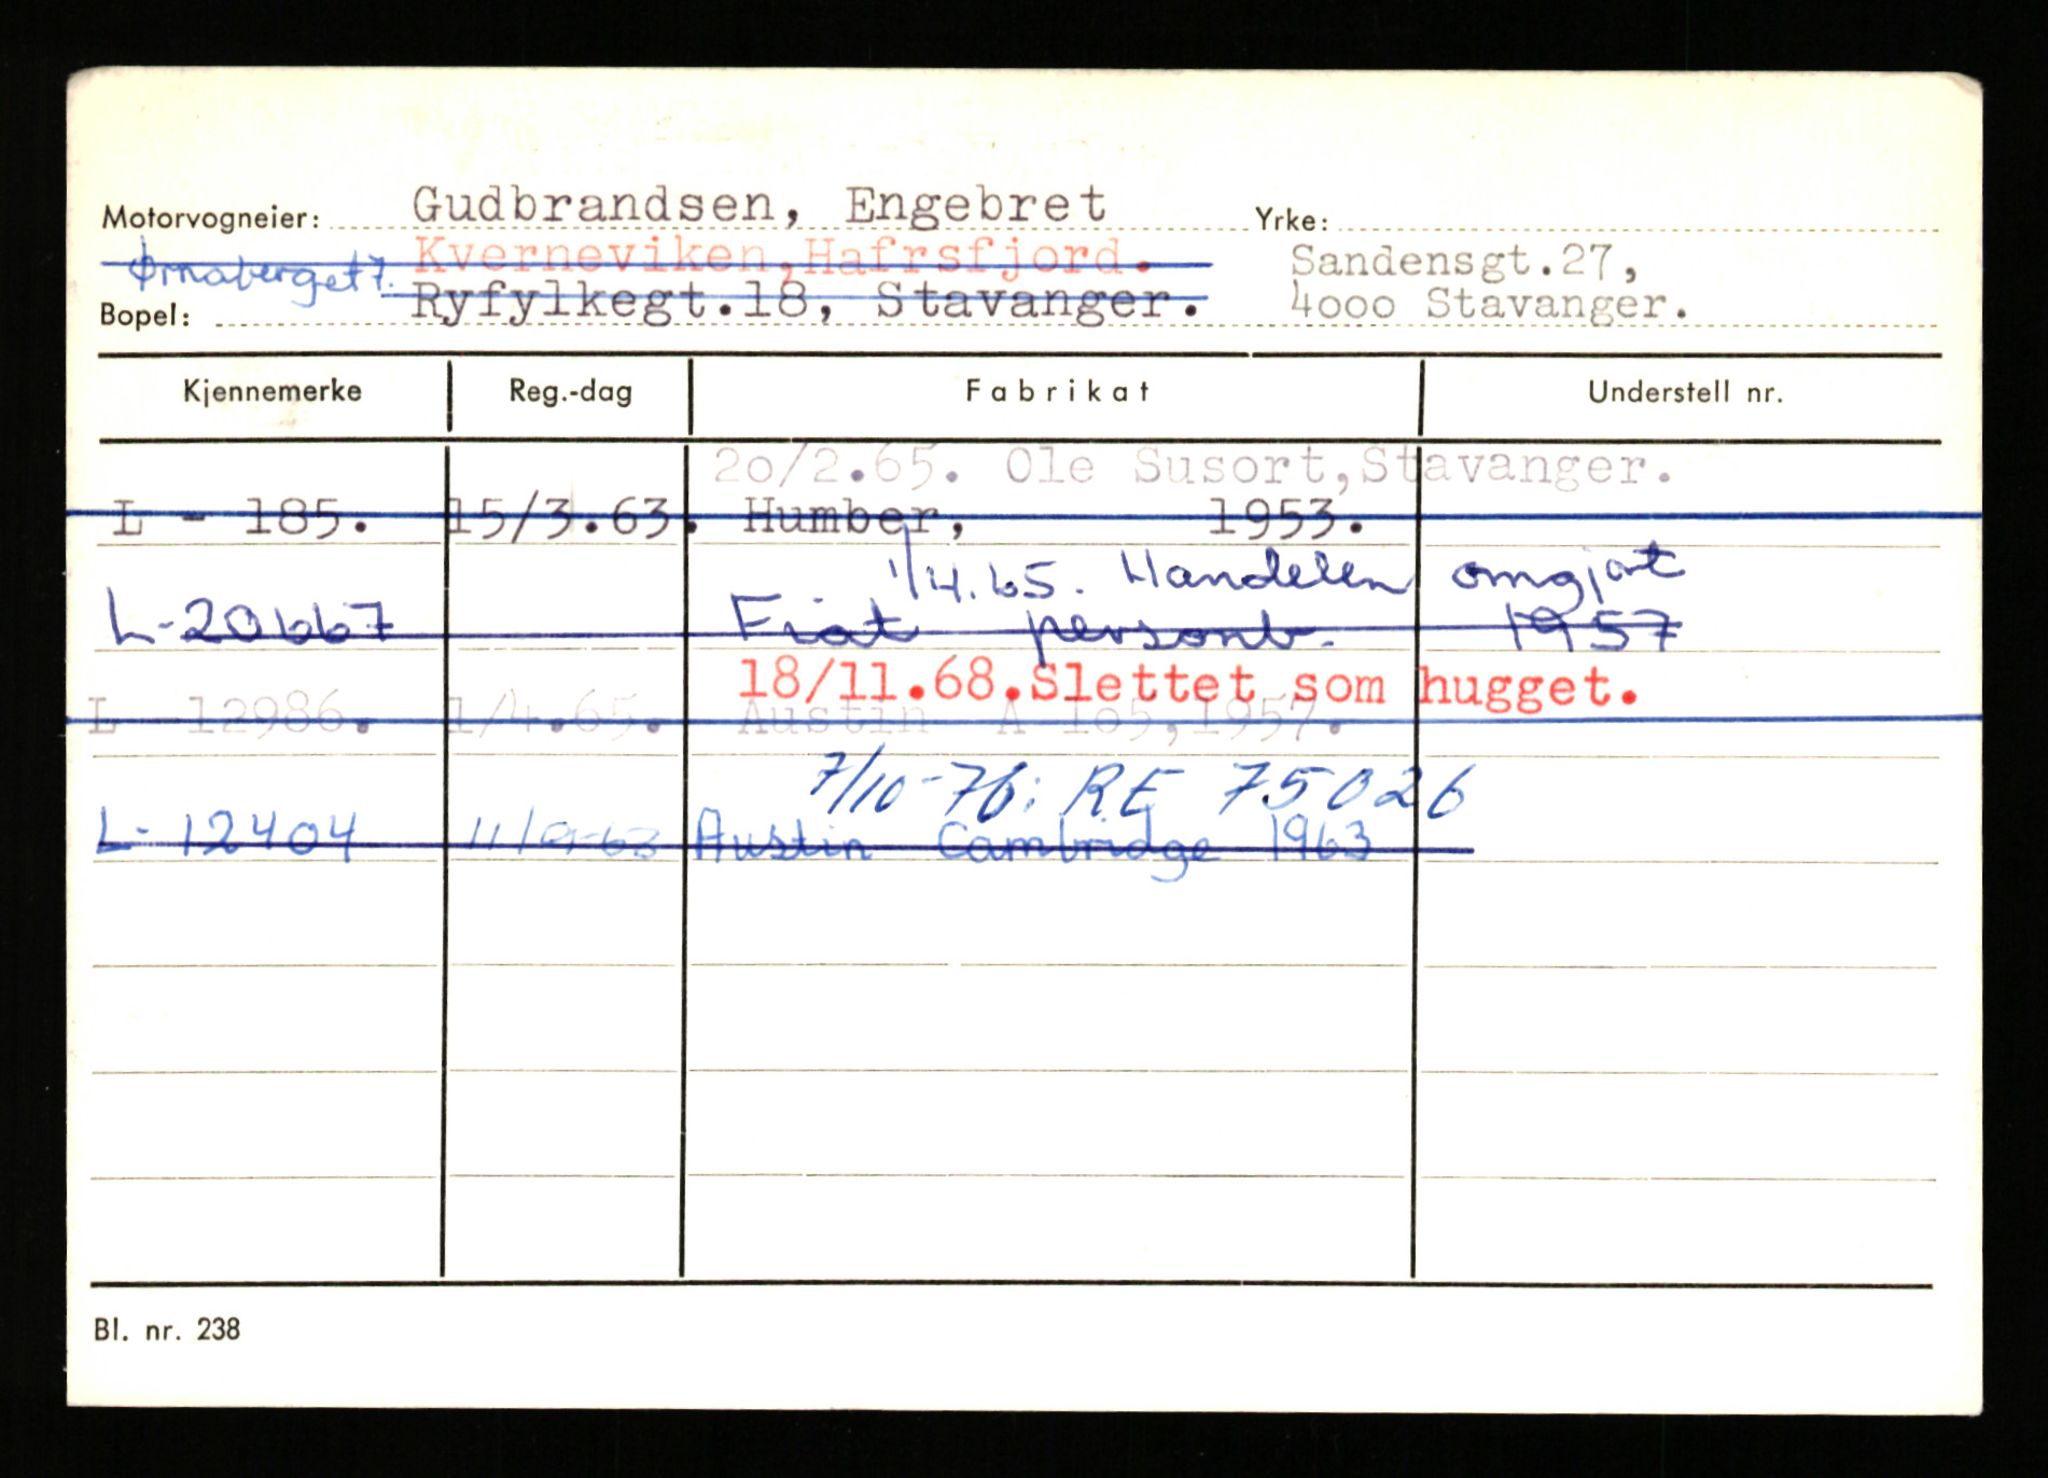 Motorvogneier: Gudbrandsen, Engebret Yrke:
Ørnaberget 7. Kverneviken, Hafrsfjord. Sandensgt.27,
Bopel: Ryfylkegt.18, Stavanger. 4000 Stavanger.
Kjennemerke Reg.-dag Fabrikat Understell nr.
20/2.65. Ole Susort, Stavanger.
L - 185. 15/3.63. Humber, 1953.
1/4.65. Handelen omgjort
L-20667 Fiat personb. 1957
18/11.68. Slettet som hugget.
L 12986. 1/4.65. Austin A 105, 1957.
7/10-76: RE 75026
L- 12404 Austin Cambridge 1963
Bl. nr. 238